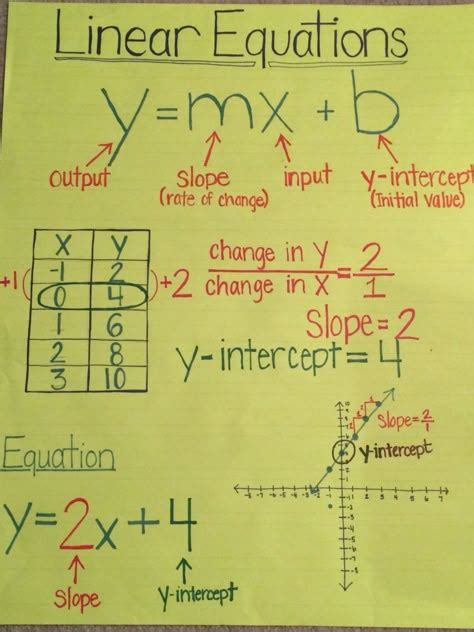 Linear Equations
y=mx + b
output slope input y-intercept
(rate of change) (Initial value)
X Y
-1 2
0 4
1 6
2 8
3 10
+1 +2
change in Y = 2
change in X 1
Slope = 2
y-intercept = 4
Slope = 2/1
y-intercept
Equation
y=2x+4
Slope y-intercept